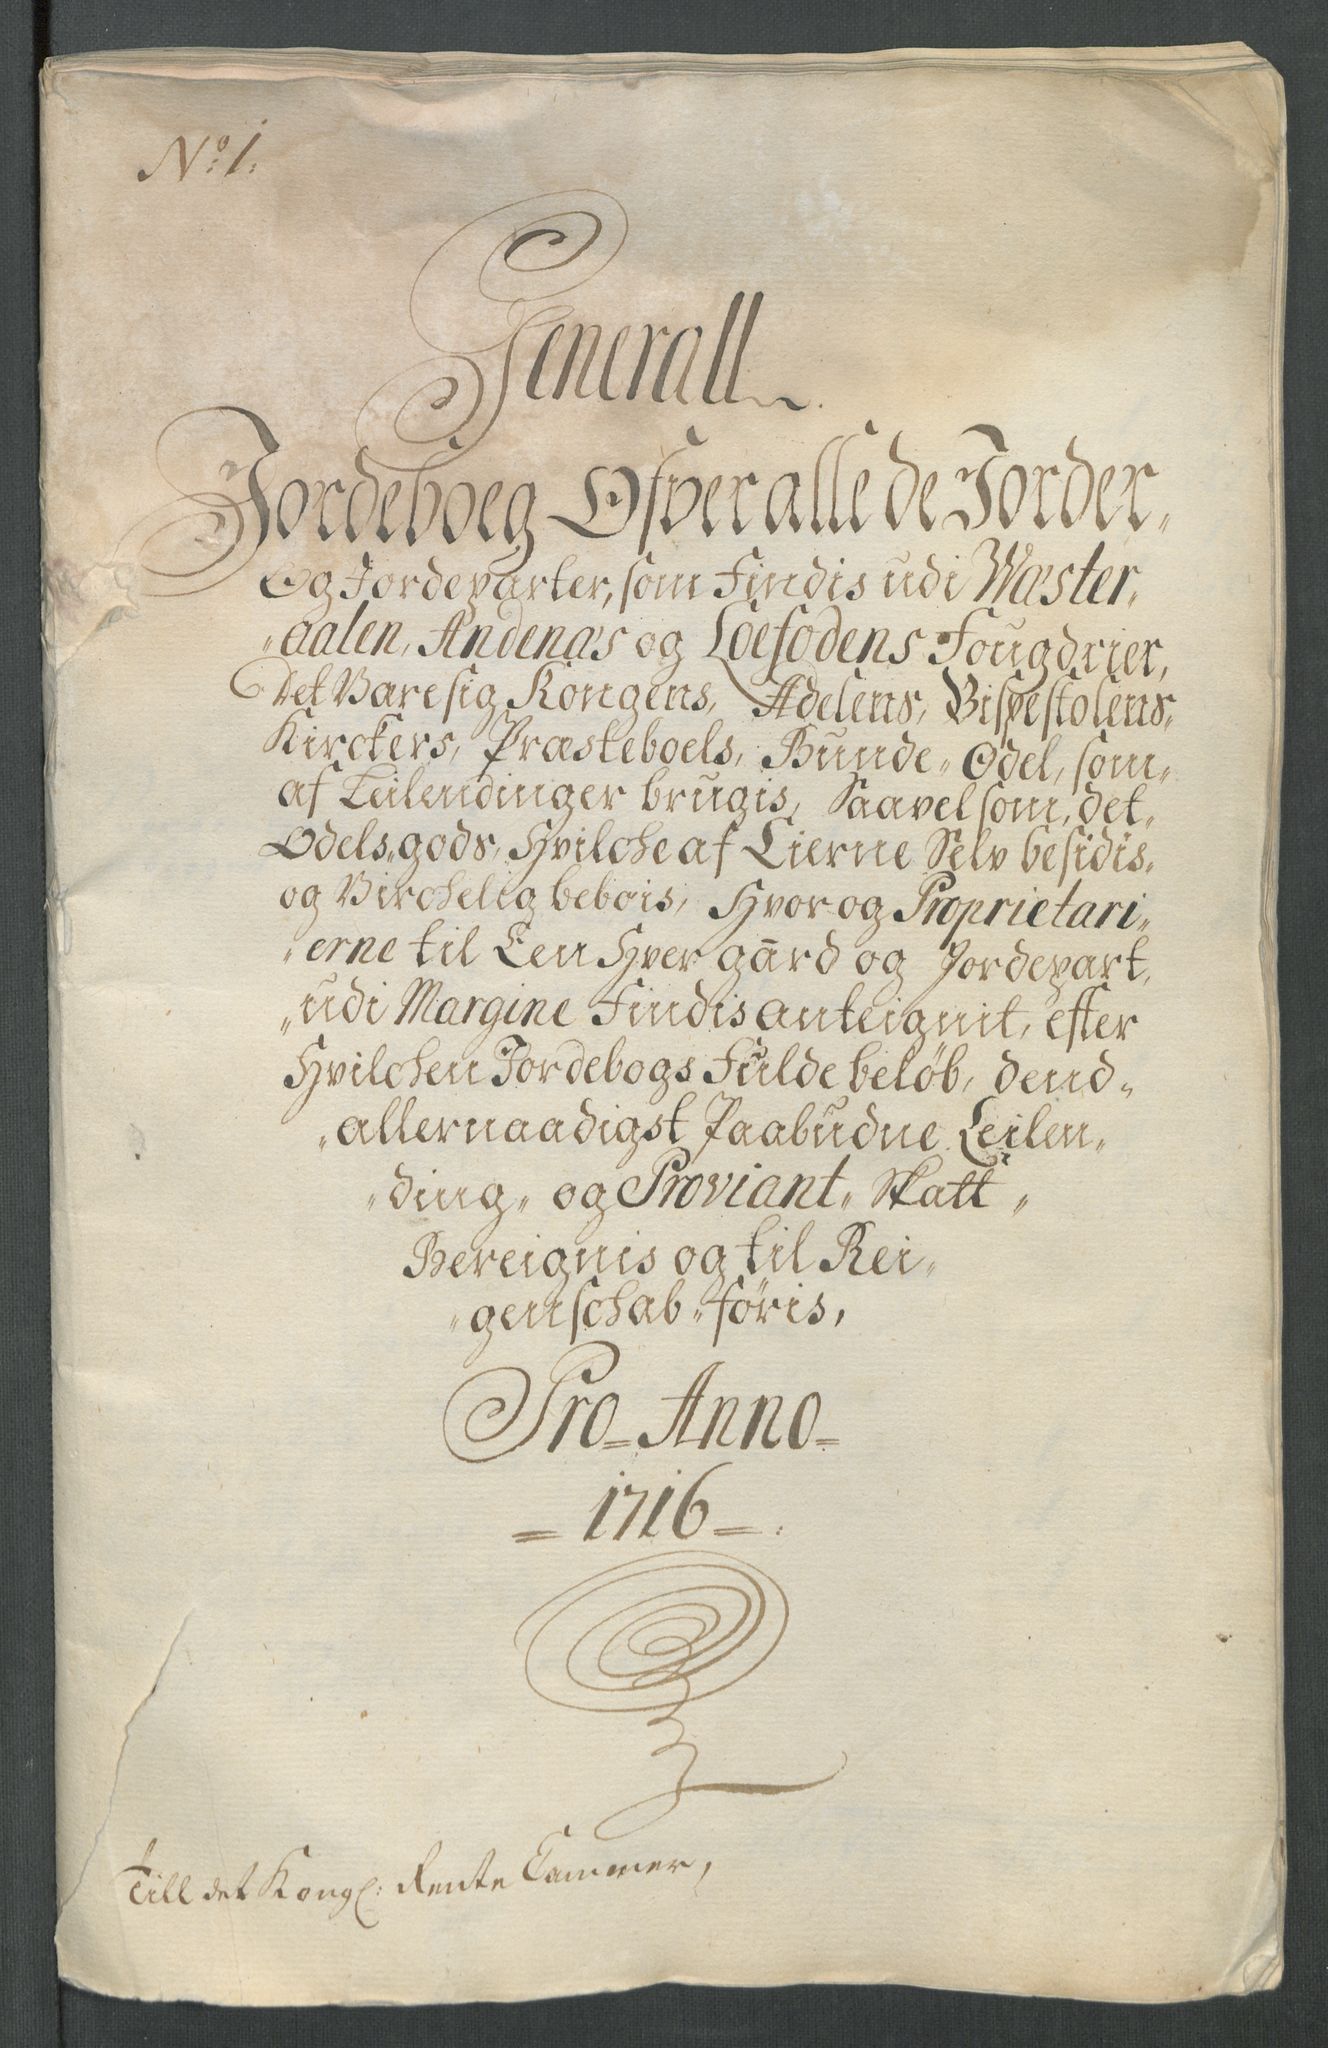 No: 1.
Generall
Jordeboeg Ofver alle de Jorder
Og Jordeparter, som Findis udi Wæster-
aalen, Andenæs og Loefodens Fougdrier,
Det Vare sig Kongens, Adelens, Bispestolens
Kirckers, Præsteboels, Bunde- Odel, som
af Leilendinger brugis, Saavel som, det
Odels-gods, Hvilche af Eierne Selv besidis
og Virchelig bebois, Hvor og Proprietari-
erne til Een Hver gård og Jordepart,
udi Margine Findis anteignit, efter
Hvilchen Jordebogs Fulde beløb, dend
allernaadigst Paabudne Leilen-
ding- og Proviant- Skatt
Bereignis og til Rei-
genschab føris,
Pro Anno
1716
Till det Kongl: Rente Cammer,